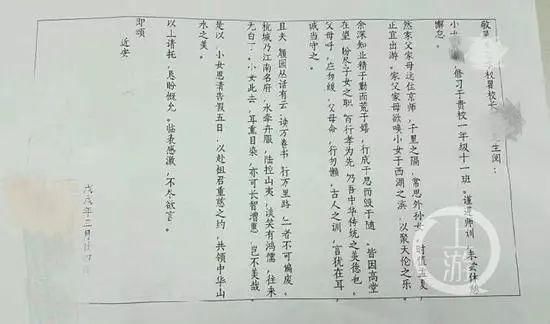 敬校暨校长生阅：
小女，修习于贵校一年级十一班。谨遵师训，未尝休憩
懈怠。
然家父家母远住京师，千里之隔，常思外孙女。时值孟夏，
正宜出游。家父家母欲唤小女于西湖之滨，以聚天伦之乐。
余深知业精于勤而荒于嬉，行成于思而毁于随。皆因高堂
在望，盼尽子女之职。百行孝为先，乃吾中华传统之美德也。
父母呼，应勿缓，父母命，行勿懒，古人之训，言犹在耳，
诚当守之。
且夫，履园丛话有云，读万卷书，行万里路，二者不可偏废。
杭城乃江南名府，水牵卉服，陆控山夷，谈笑有鸿儒，往来
无白丁。小女此去，耳熏目染，亦可长智漕惠，岂不美哉。
是以，小女恳请告假五日，以赴祖君重慈之约，共领中华山
水之美。
以上请托，恳盼慨允。临表感激，不大欲言。
即颂
近安
戊戌年三月廿四日
上游